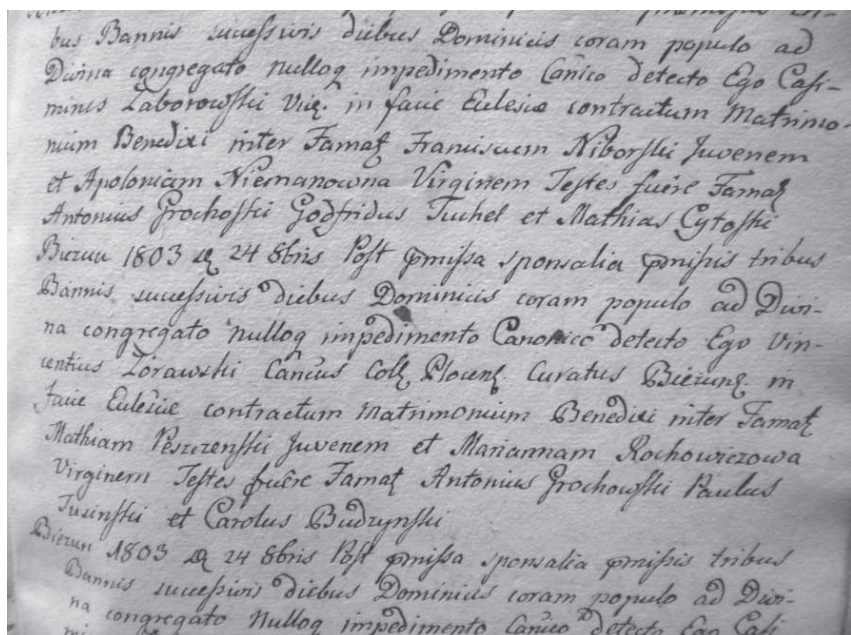 bus Bannis successivis diebus Dominicis coram populo ad
Divina congregato nulloq impedimento Canico detecto Ego Casi-
mirus Zaborowski Vic. in facie Eclesie contractum Matrimo-
nium Benedixi inter Famat Franciscum Niborski Juvenem
et Apoloniam Niemanowna Virginem Testes fuere Famat
Antonius Grochoski Godfridus Tuchel et Mathias Cytoski
Biezun 1803 D 24 8bris Post pmissa sponsalia pmisis tribus
Bannis successivis diebus Dominicis coram populo ad Divi-
na congregato nulloq impedimento Canonico detecto Ego Vin-
centius Zorawski Cancus Coll Plocen. Curatus Biezun. in
facie Eclesiae contractum Matrimonium Benedixi inter Famat
Mathiam Peszczenski Juvenem et Mariannam Rochowiczowa
Virginem Testes fuere Famat Antonius Grochowski Paulus
Tusinski et Carolus Budzynski
Biezun 1803 D 24 8bris Post pmissa sponsalia pmisis tribus
Bannis successivis diebus Dominicis coram populo ad Divi-
na congregato nulloq impedimento Canico detecto Ego Casi-